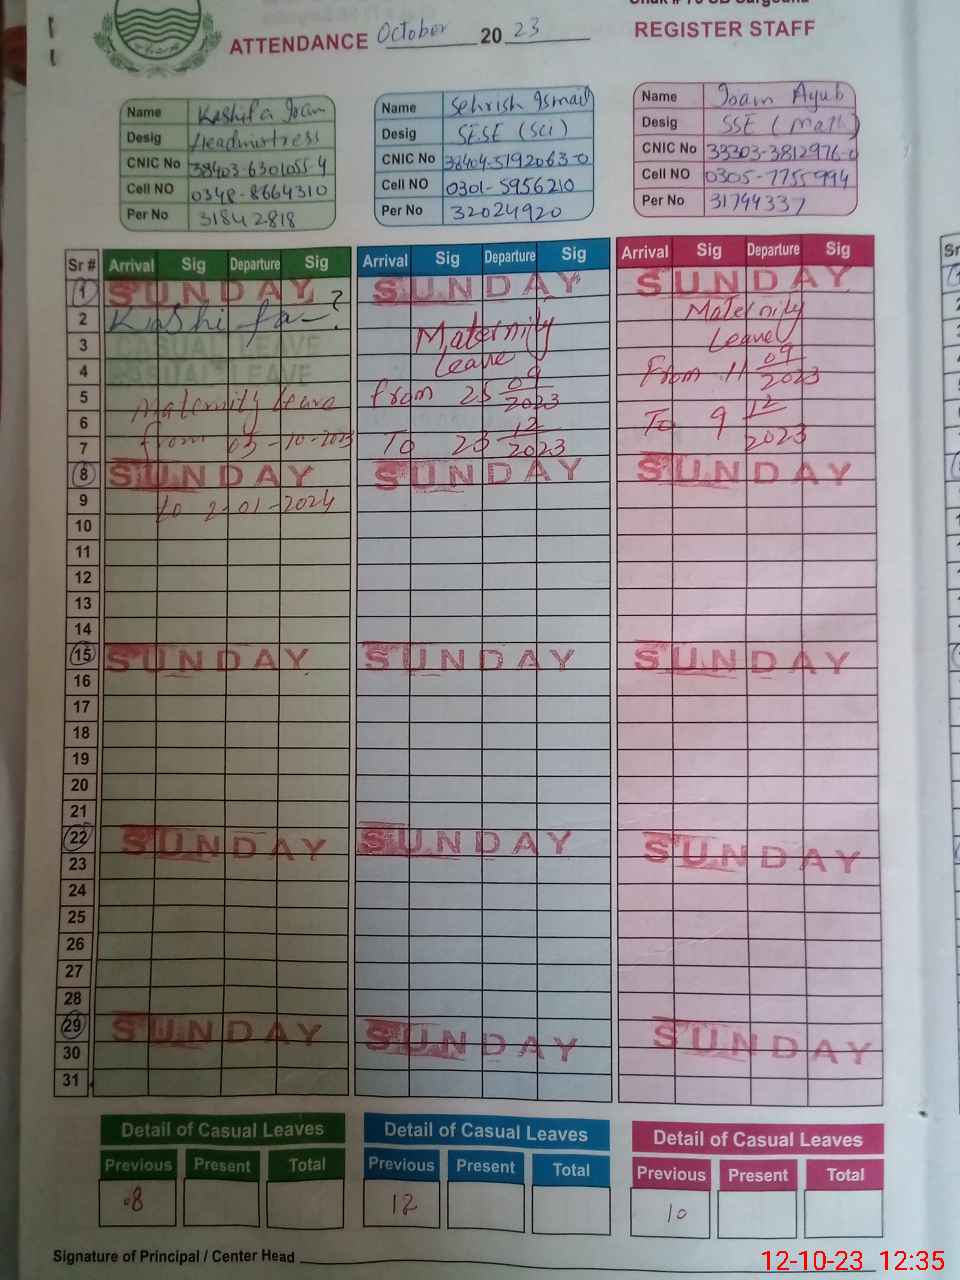 ATTENDANCE October 20 23 REGISTER STAFF
Name Kashifa Iram
Desig Headmistress
CNIC No 38403-6301055-4
Cell NO 0348-8664310
Per No 31842818
Name Sehrish Ismail
Desig SESE (Sci)
CNIC No 38404-5192063-0
Cell NO 0301-5956210
Per No 32024920
Name Iram Ayub
Desig SSE (Math)
CNIC No 33303-3812976-0
Cell NO 0305-7755994
Per No 31794337
Sr # Arrival Sig Departure Sig Arrival Sig Departure Sig Arrival Sig Departure Sig
1 SUNDAY SUNDAY SUNDAY
2 Kashifa-? Maternity
3 CASUAL LEAVE Maternity Leave
4 CASUAL LEAVE Leave From 11 09/2023
5 Maternity leave from 25 09/2023
6 To 9 12/2023
7 from 05-10-2023 To 23 12/2023
8 SUNDAY SUNDAY SUNDAY
9 to 2-01-2024
10
11
12
13
14
15 SUNDAY SUNDAY SUNDAY
16
17
18
19
20
21
22 SUNDAY SUNDAY SUNDAY
23
24
25
26
27
28
29 SUNDAY SUNDAY SUNDAY
30
31
Detail of Casual Leaves Detail of Casual Leaves Detail of Casual Leaves
Previous Present Total Previous Present Total Previous Present Total
08 12 10
Signature of Principal / Center Head
12-10-23 12:35